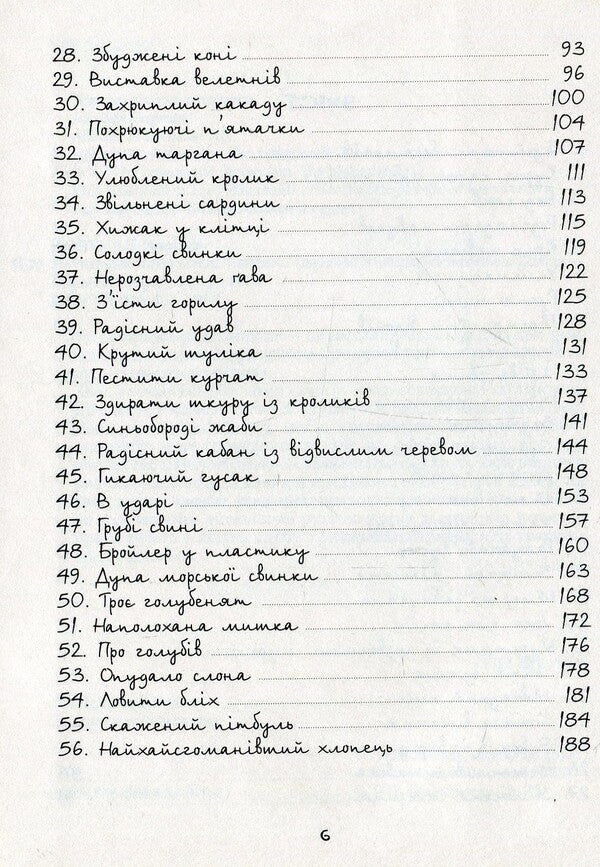 28. Збуджені коні 93
29. Виставка велетнів 96
30. Захриплий какаду 100
31. Похрюкуючі п'ятачки 104
32. Дупа таргана 107
33. Улюблений кролик 111
34. Звільнені сардини 113
35. Хижак у клітці 115
36. Солодкі свинки 119
37. Нерозчавлена ґава 122
38. З'їсти горилу 125
39. Радісний удав 128
40. Крутий шуліка 131
41. Пестити курчат 133
42. Здирати шкуру із кроликів 137
43. Синьобороді жаби 141
44. Радісний кабан із відвислим черевом 144
45. Гикаючий гусак 148
46. В ударі 153
47. Грубі свині 157
48. Бройлер у пластику 160
49. Дупа морської свинки 163
50. Троє голубенят 168
51. Наполохана мишка 172
52. Про голубів 176
53. Опудало слона 178
54. Ловити бліх 181
55. Скажений пітбуль 184
56. Найхайсгоманівший хлопець 188
6